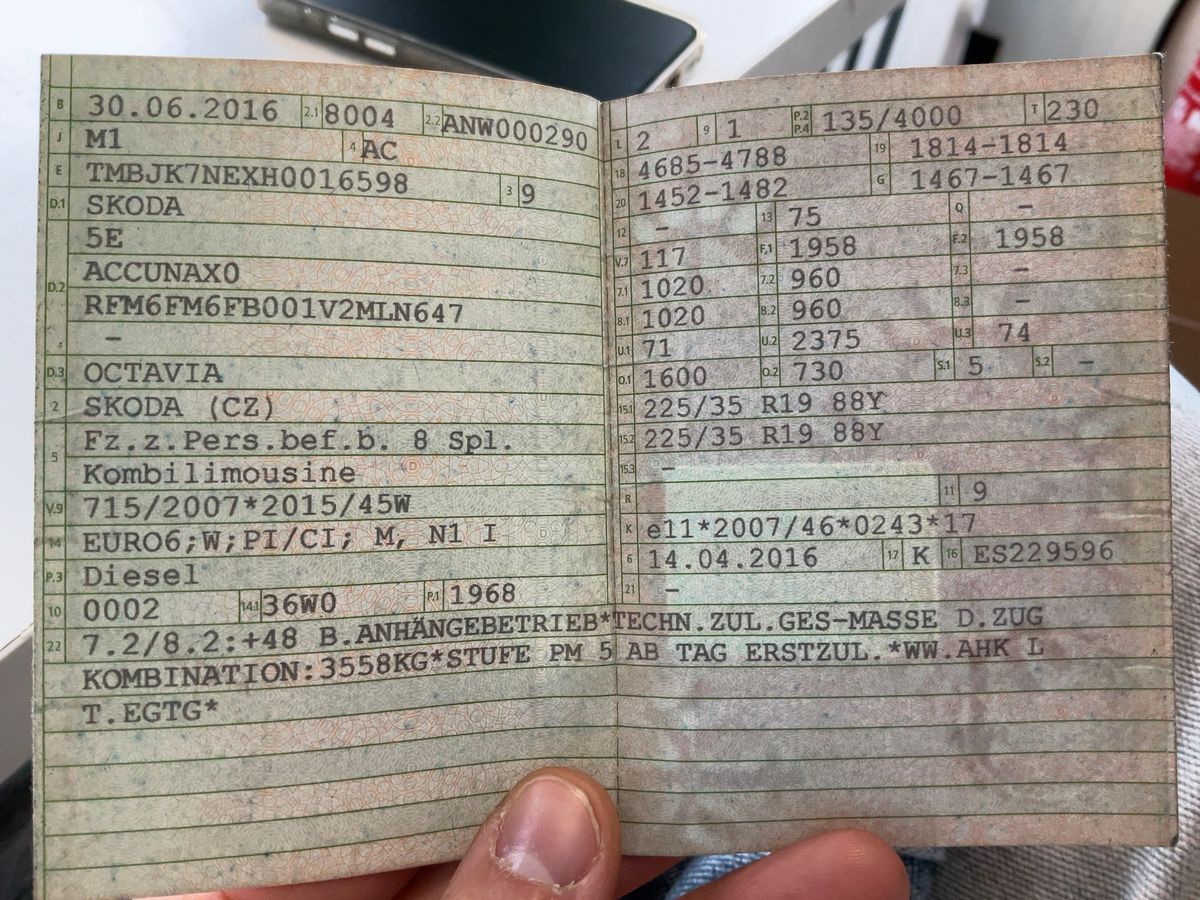 B 30.06.2016 2.1 8004 2.2 ANW000290
J M1 4 AC
E TMBJK7NEXH0016598 3 9
D.1 SKODA
5E
D.2 ACCUNAX0
RFM6FM6FB001V2MLN647
–
D.3 OCTAVIA
2 SKODA (CZ)
5 Fz.z.Pers.bef.b. 8 Spl.
Kombilimousine
V.9 715/2007*2015/45W
14 EURO6;W;PI/CI; M, N1 I
P.3 Diesel
10 0002 14.1 36W0 P.1 1968
L 2 9 1 P.2 P.4 135/4000 T 230
18 4685-4788 19 1814-1814
20 1452-1482 G 1467-1467
12 – 13 75 Q –
V.7 117 F.1 1958 F.2 1958
7.1 1020 7.2 960 7.3 –
8.1 1020 8.2 960 8.3 –
U.1 71 U.2 2375 U.3 74
O.1 1600 O.2 730 S.1 5 S.2 –
15.1 225/35 R19 88Y
15.2 225/35 R19 88Y
15.3 –
R 11 9
K e11*2007/46*0243*17
6 14.04.2016 17 K 16 ES229596
21 –
22 7.2/8.2:+48 B.ANHÄNGEBETRIEB*TECHN.ZUL.GES-MASSE D.ZUG
KOMBINATION:3558KG*STUFE PM 5 AB TAG ERSTZUL.*WW.AHK L
T.EGTG*